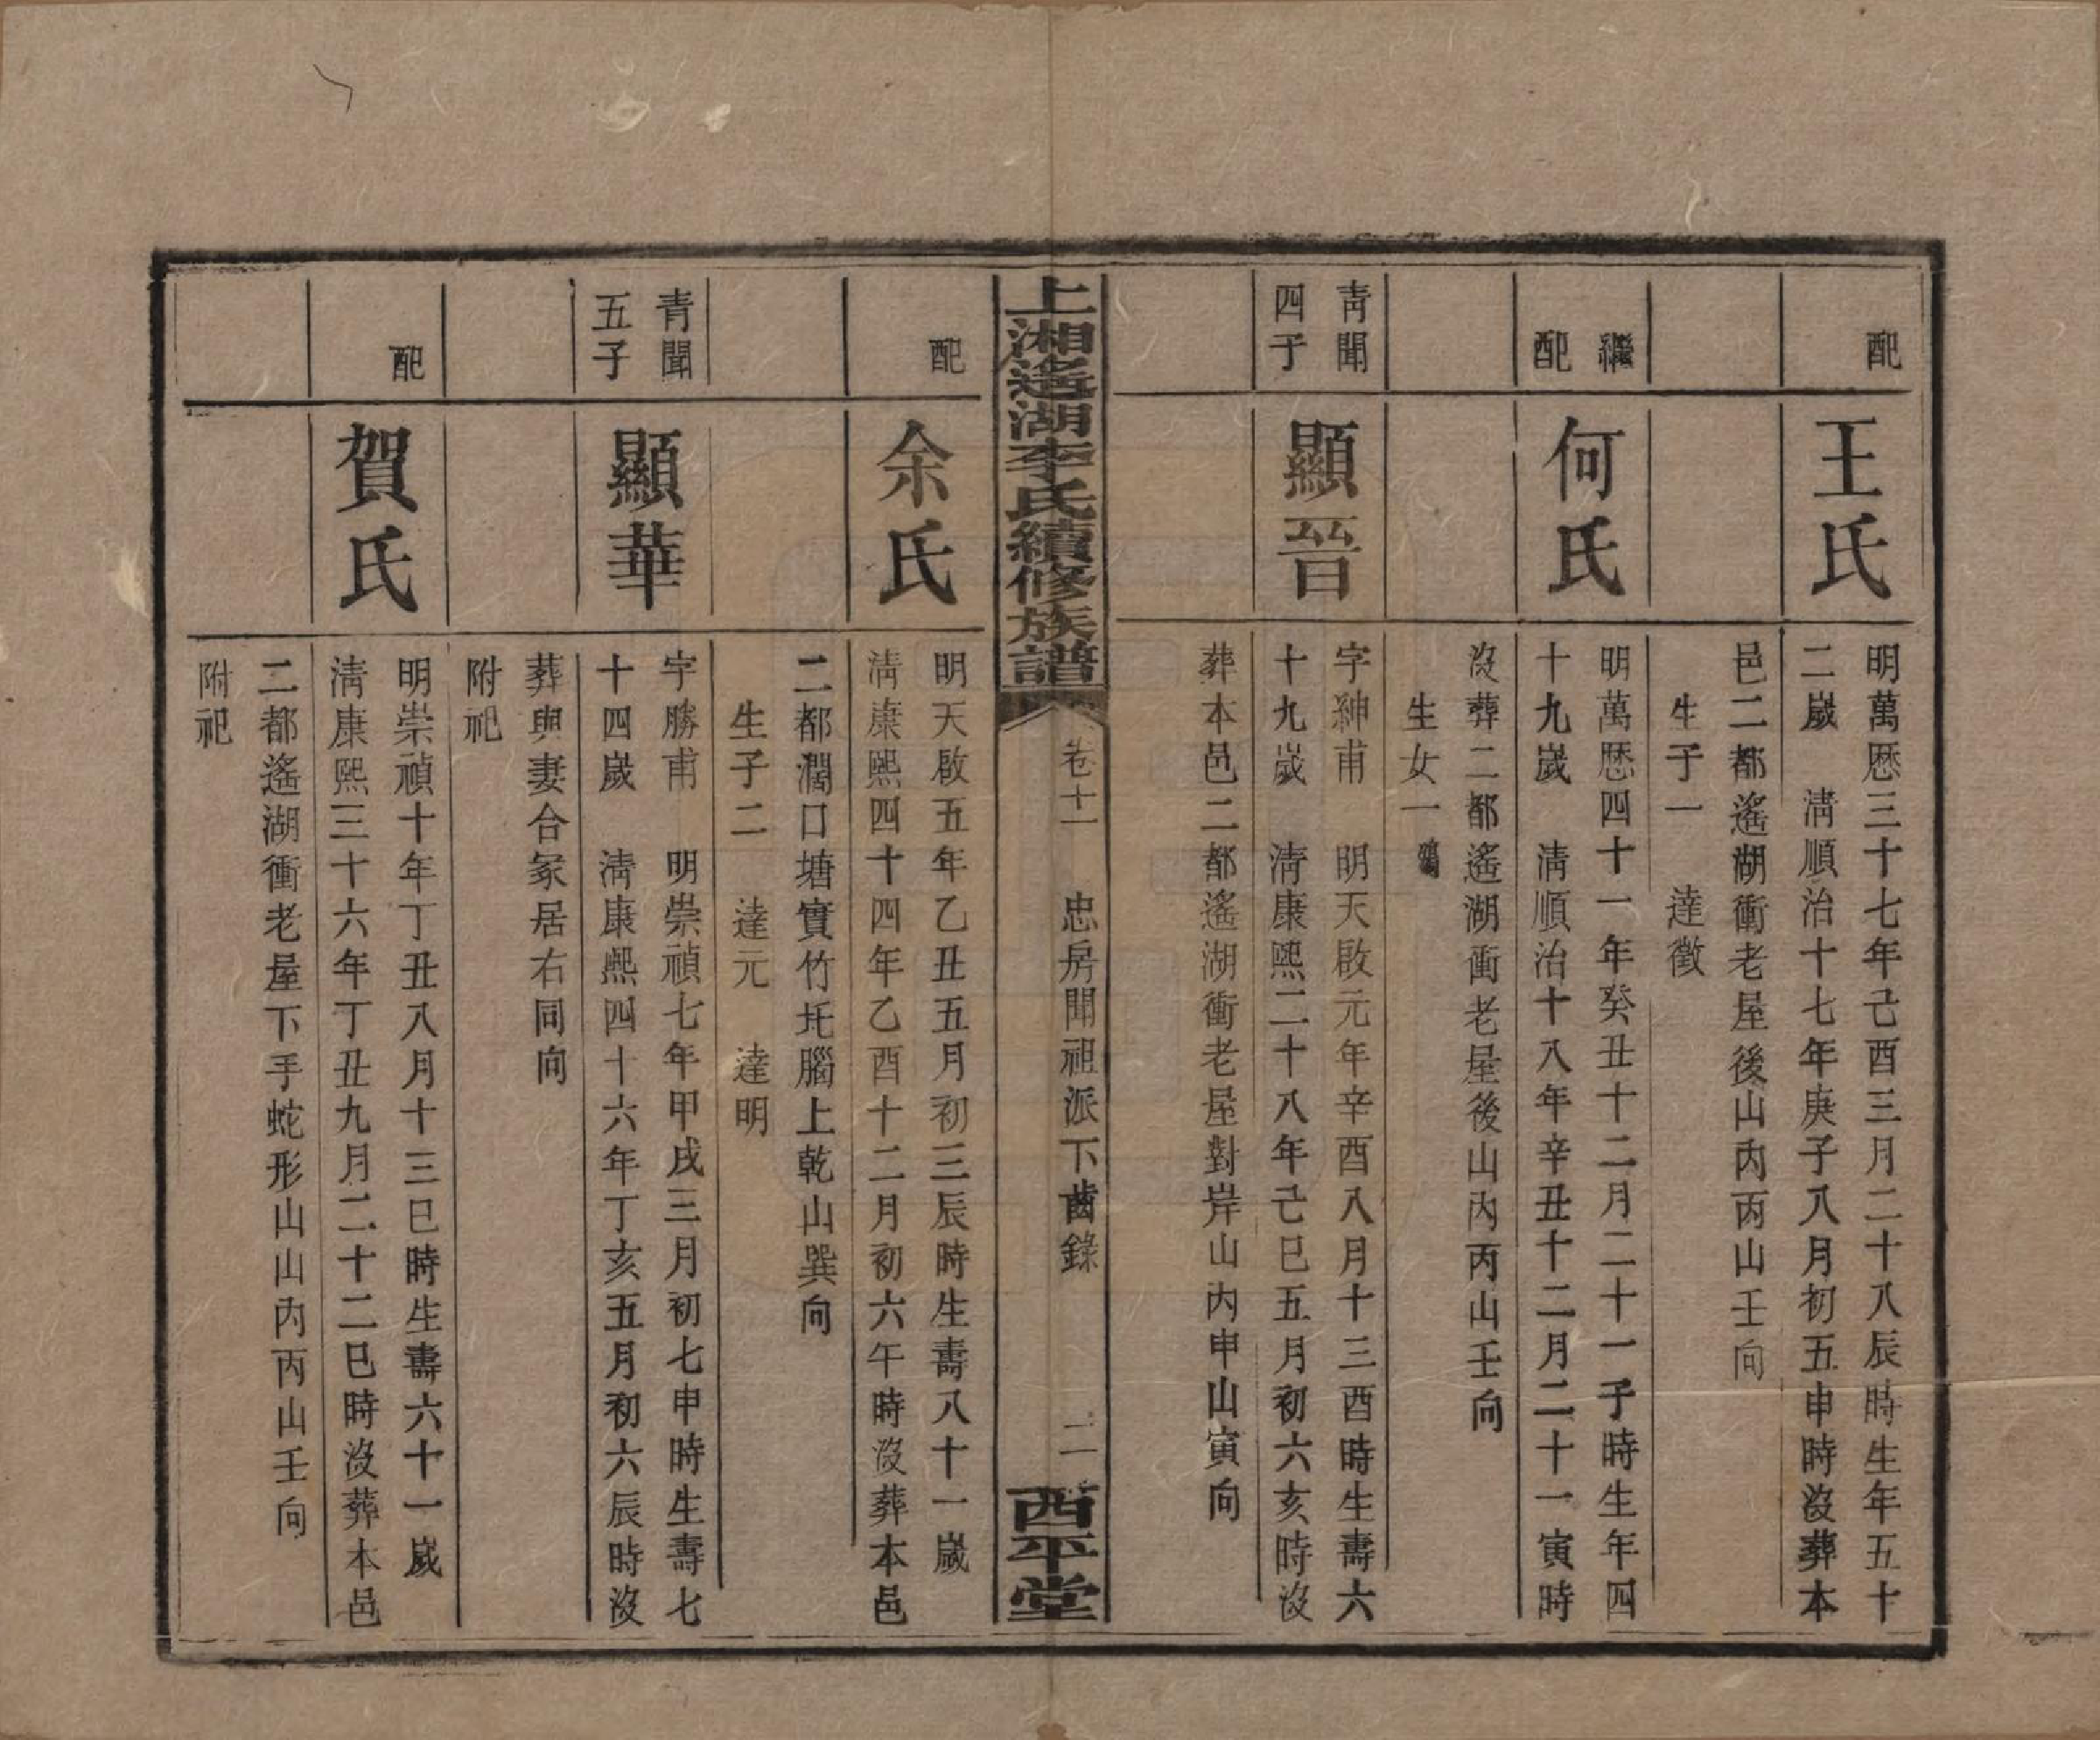 配
王氏
明萬厯三十七年己酉三月二十八辰時生年五十
二歲　清順治十七年庚子八月初五申時沒葬本
邑二都遙湖衝老屋後山內丙山壬向
生子一　達徵
繼
配
何氏
明萬厯四十一年癸丑十二月二十一子時生年四
十九歲　清順治十八年辛丑十二月二十一寅時
沒葬二都遙湖衝老屋後山內丙山壬向
生女一
青聞
四子
顯晉
字紳甫　明天啟元年辛酉八月十三酉時生壽六
十九歲　清康熙二十八年己巳五月初六亥時沒
葬本邑二都遙湖衝老屋對岸山內申山寅向
上湘遙湖李氏續修族譜
卷十一　忠房聞祖派下齒錄　二
西平堂
配
余氏
明天啟五年乙丑五月初三辰時生壽八十一歲
清康熙四十四年乙酉十二月初六午時沒葬本邑
二都澗口塘實竹圫腦上乾山巽向
生子二　達元　達明
青聞
五子
顯華
字勝甫　明崇禎七年甲戌三月初七申時生壽七
十四歲　清康熙四十六年丁亥五月初六辰時沒
葬與妻合冢居右同向
附祀
配
賀氏
明崇禎十年丁丑八月十三巳時生壽六十一歲
清康熙三十六年丁丑九月二十二巳時沒葬本邑
二都遙湖衝老屋下手蛇形山山內丙山壬向
附祀